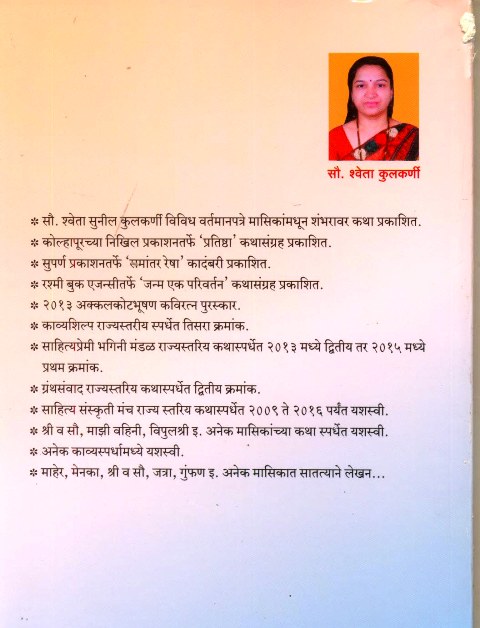 सौ. श्वेता कुलकर्णी
❉ सौ. श्वेता सुनील कुलकर्णी विविध वर्तमानपत्रे मासिकांमधून शंभरावर कथा प्रकाशित.
❉ कोल्हापूरच्या निखिल प्रकाशनतर्फे ‘प्रतिष्ठा’ कथासंग्रह प्रकाशित.
❉ सुपर्ण प्रकाशनतर्फे ‘समांतर रेषा’ कादंबरी प्रकाशित.
❉ रश्मी बुक एजन्सीतर्फे ‘जन्म एक परिवर्तन’ कथासंग्रह प्रकाशित.
❉ २०१३ अक्कलकोटभूषण कविरत्न पुरस्कार.
❉ काव्यशिल्प राज्यस्तरीय स्पर्धेत तिसरा क्रमांक.
❉ साहित्यप्रेमी भगिनी मंडळ राज्यस्तरिय कथास्पर्धेत २०१३ मध्ये द्वितीय तर २०१५ मध्ये
प्रथम क्रमांक.
❉ ग्रंथसंवाद राज्यस्तरिय कथास्पर्धेत द्वितीय क्रमांक.
❉ साहित्य संस्कृती मंच राज्य स्तरिय कथास्पर्धेत २००९ ते २०१६ पर्यंत यशस्वी.
❉ श्री व सौ, माझी वहिनी, विपुलश्री इ. अनेक मासिकांच्या कथा स्पर्धेत यशस्वी.
❉ अनेक काव्यस्पर्धामध्ये यशस्वी.
❉ माहेर, मेनका, श्री व सौ, जत्रा, गुंफण इ. अनेक मासिकात सातत्याने लेखन...